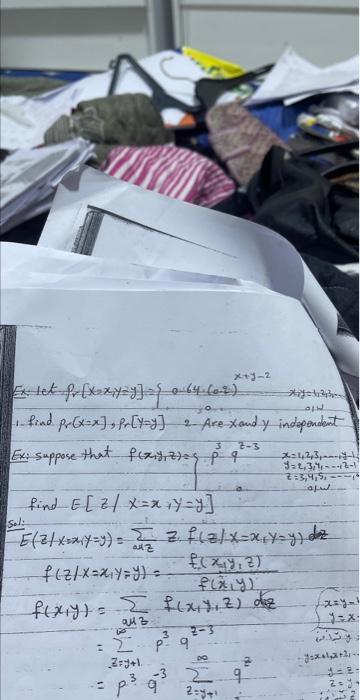 Ex: let Pr[X=x,Y=y]={ 0.64 (0.2)^{x+y-2} x,y=1,2,3,...
, 0. o/w
1. find Pr[X=x], Pr[Y=y] 2. Are X and Y independent
Ex: suppose that f(x,y,z)={ p^3 q^{z-3} x=1,2,3,....,y-1
y=2,3,4,...,z-1
z=3,4,5,......
0 o/w
find E[Z/X=x,Y=y]
Sol:
E(Z/X=x,Y=y) = ∑_{all z} z f(z/X=x,Y=y)
f(z/X=x,Y=y) = f(x,y,z) / f(x,y)
f(x,y) = ∑_{all z} f(x,y,z)
= ∑_{z=y+1}^{∞} p^3 q^{z-3}
= p^3 q^{-3} ∑_{z=y+1}^{∞} q^z